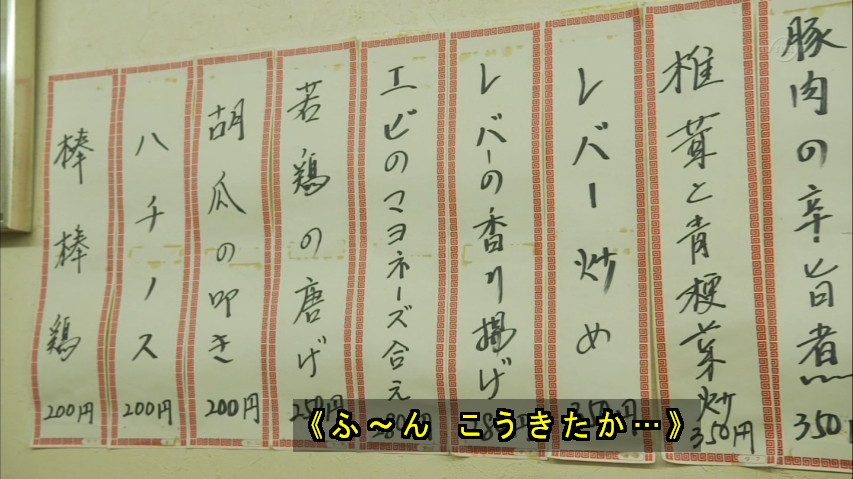 豚肉の辛旨煮 350
椎茸と青梗菜炒 350円
レバー炒め 350円
レバーの香り揚げ
エビのマヨネーズ合え
若鶏の唐げ 250円
胡瓜の叩き 200円
ハチノス 200円
棒棒鶏 200円
《ふ～ん　こうきたか…》